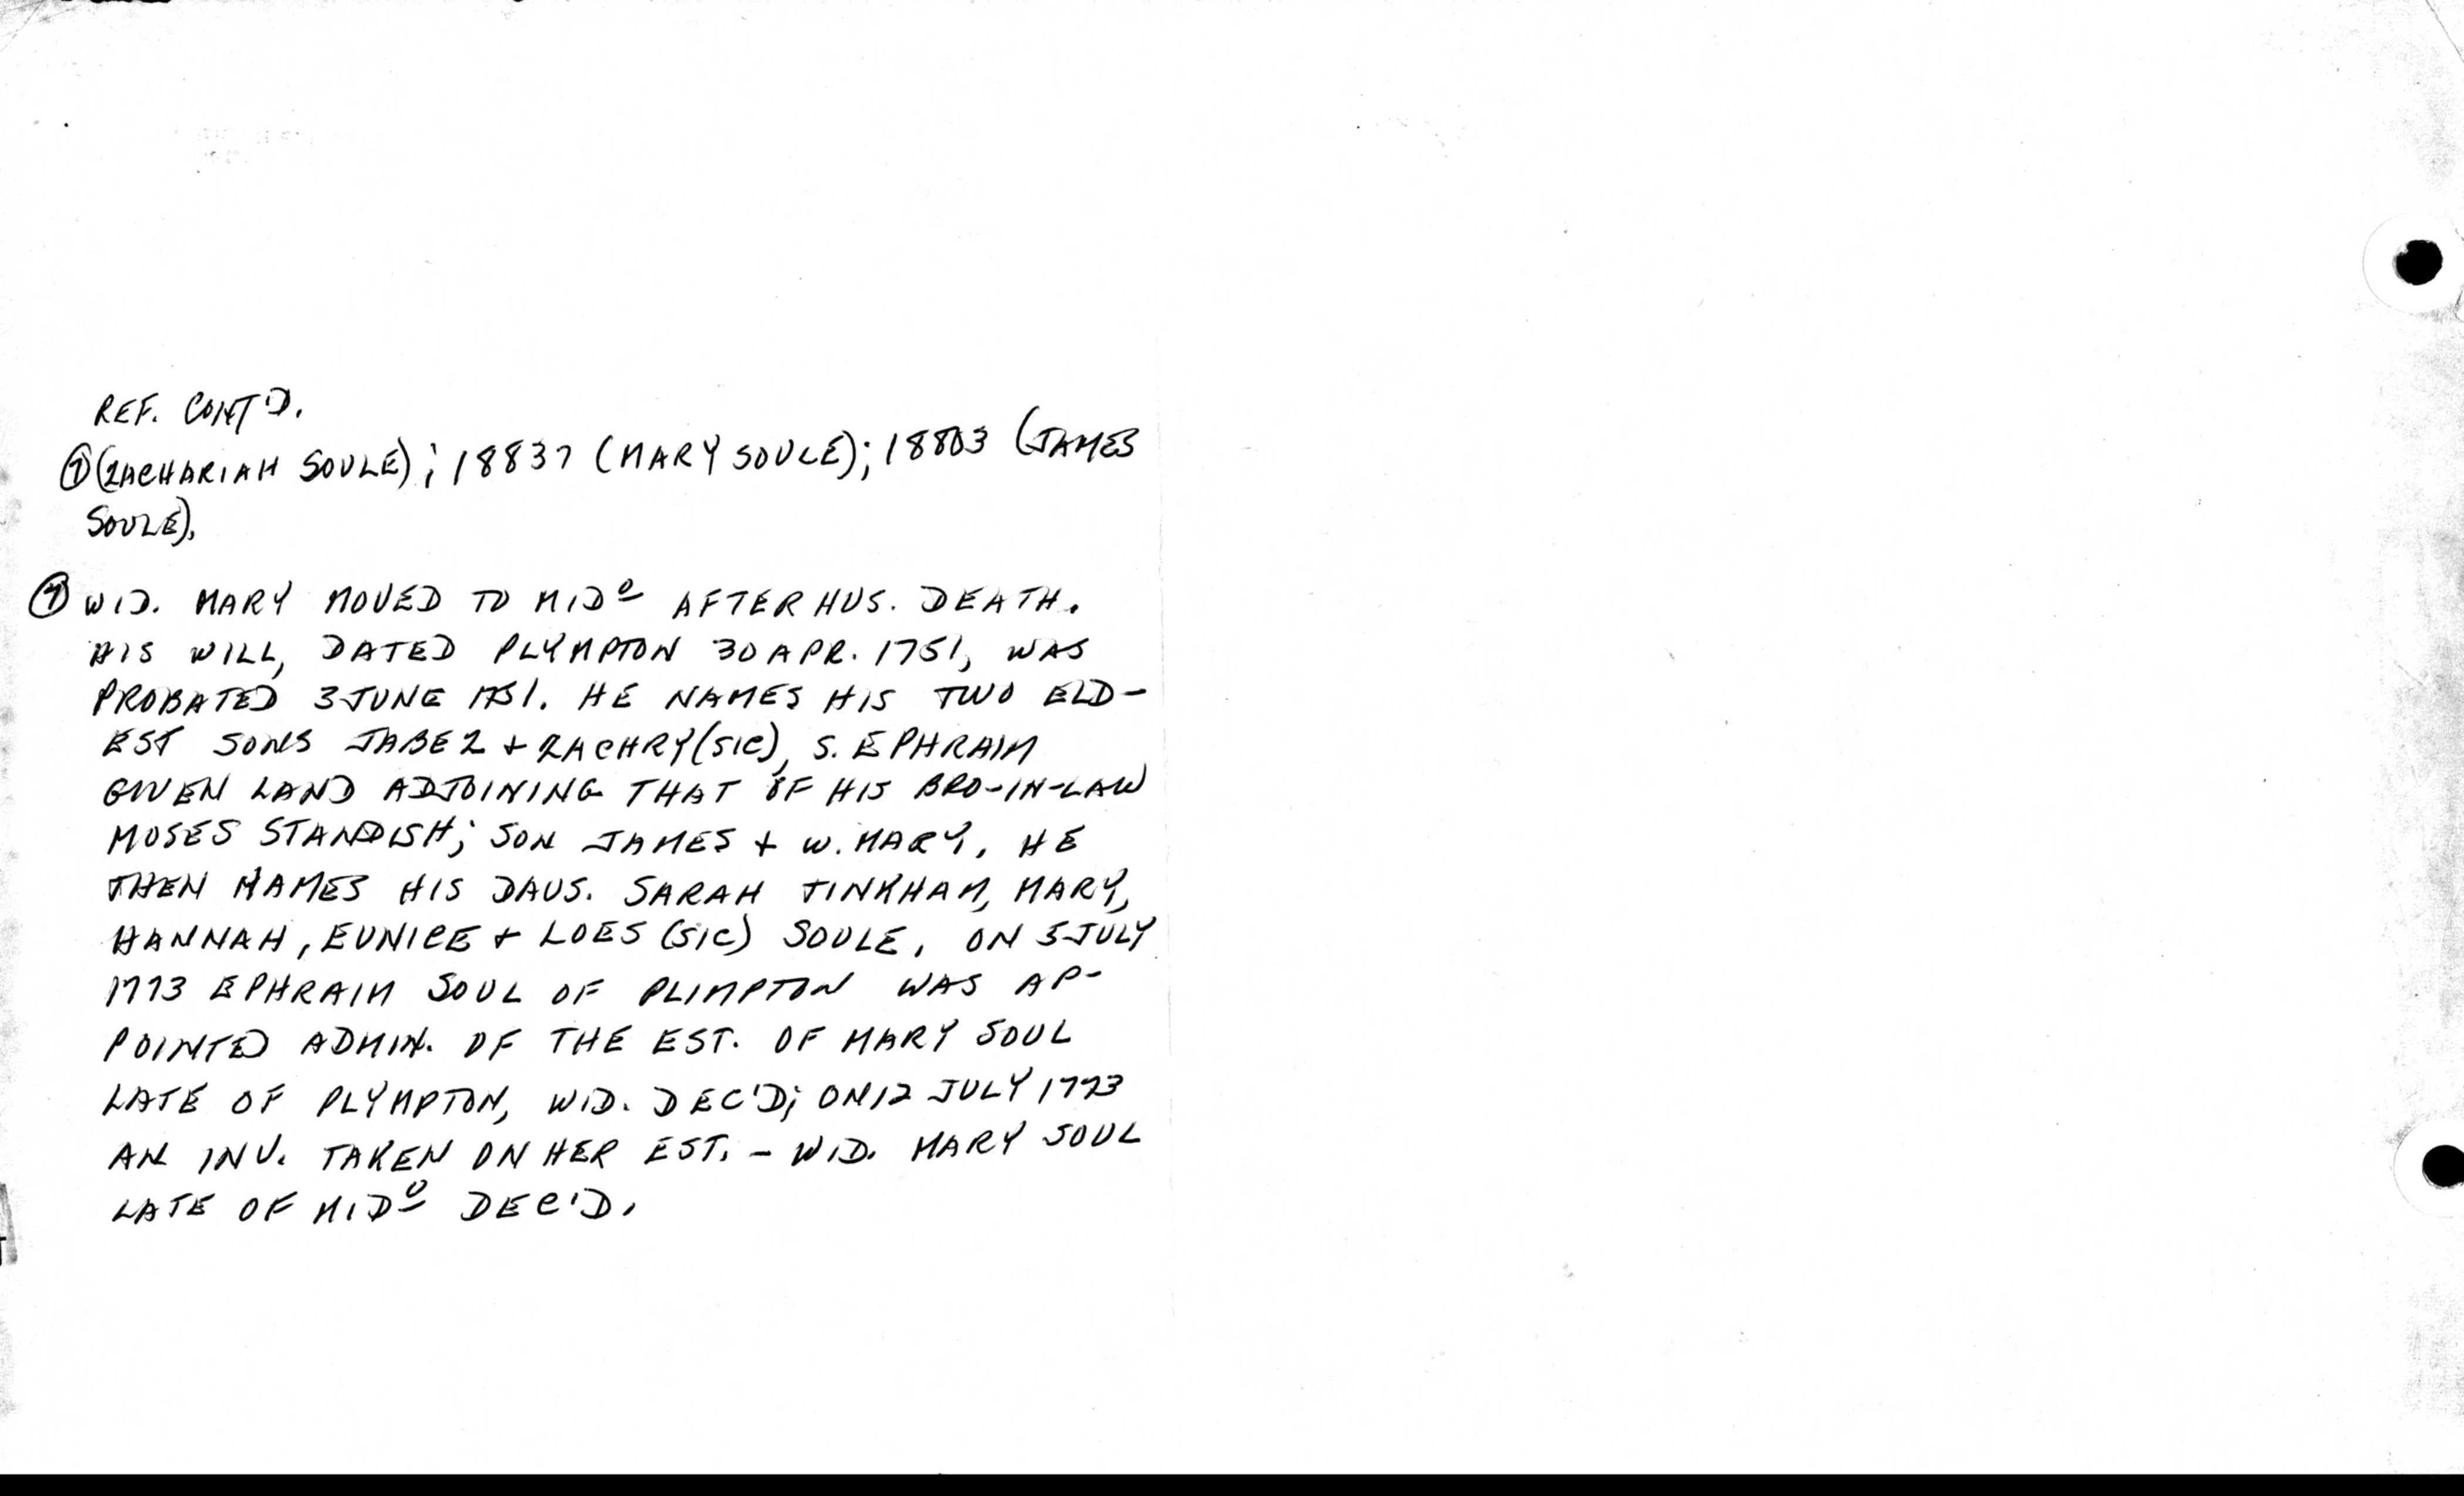 REF. CONT'D.
① (ZACHARIAH SOULE); 18837 (MARY SOULE); 18803 (JAMES
SOULE).
④ WID. MARY MOVED TO MIDº AFTER HUS. DEATH.
HIS WILL, DATED PLYMPTON 30 APR. 1751, WAS
PROBATED 3 JUNE 1751. HE NAMES HIS TWO ELD-
EST SONS JABEZ + ZACHRY (SIC), S. EPHRAIM
GIVEN LAND ADJOINING THAT OF HIS BRO-IN-LAW
MOSES STANDISH; SON JAMES + W. MARY. HE
THEN NAMES HIS DAUS. SARAH TINKHAM, MARY,
HANNAH, EUNICE + LOES (SIC) SOULE. ON 5 JULY
1773 EPHRAIM SOUL OF PLIMPTON WAS AP-
POINTED ADMIN. OF THE EST. OF MARY SOUL
LATE OF PLYMPTON, WID. DEC'D; ON 12 JULY 1773
AN INV. TAKEN ON HER EST. - WID. MARY SOUL
LATE OF MIDº DEC'D.